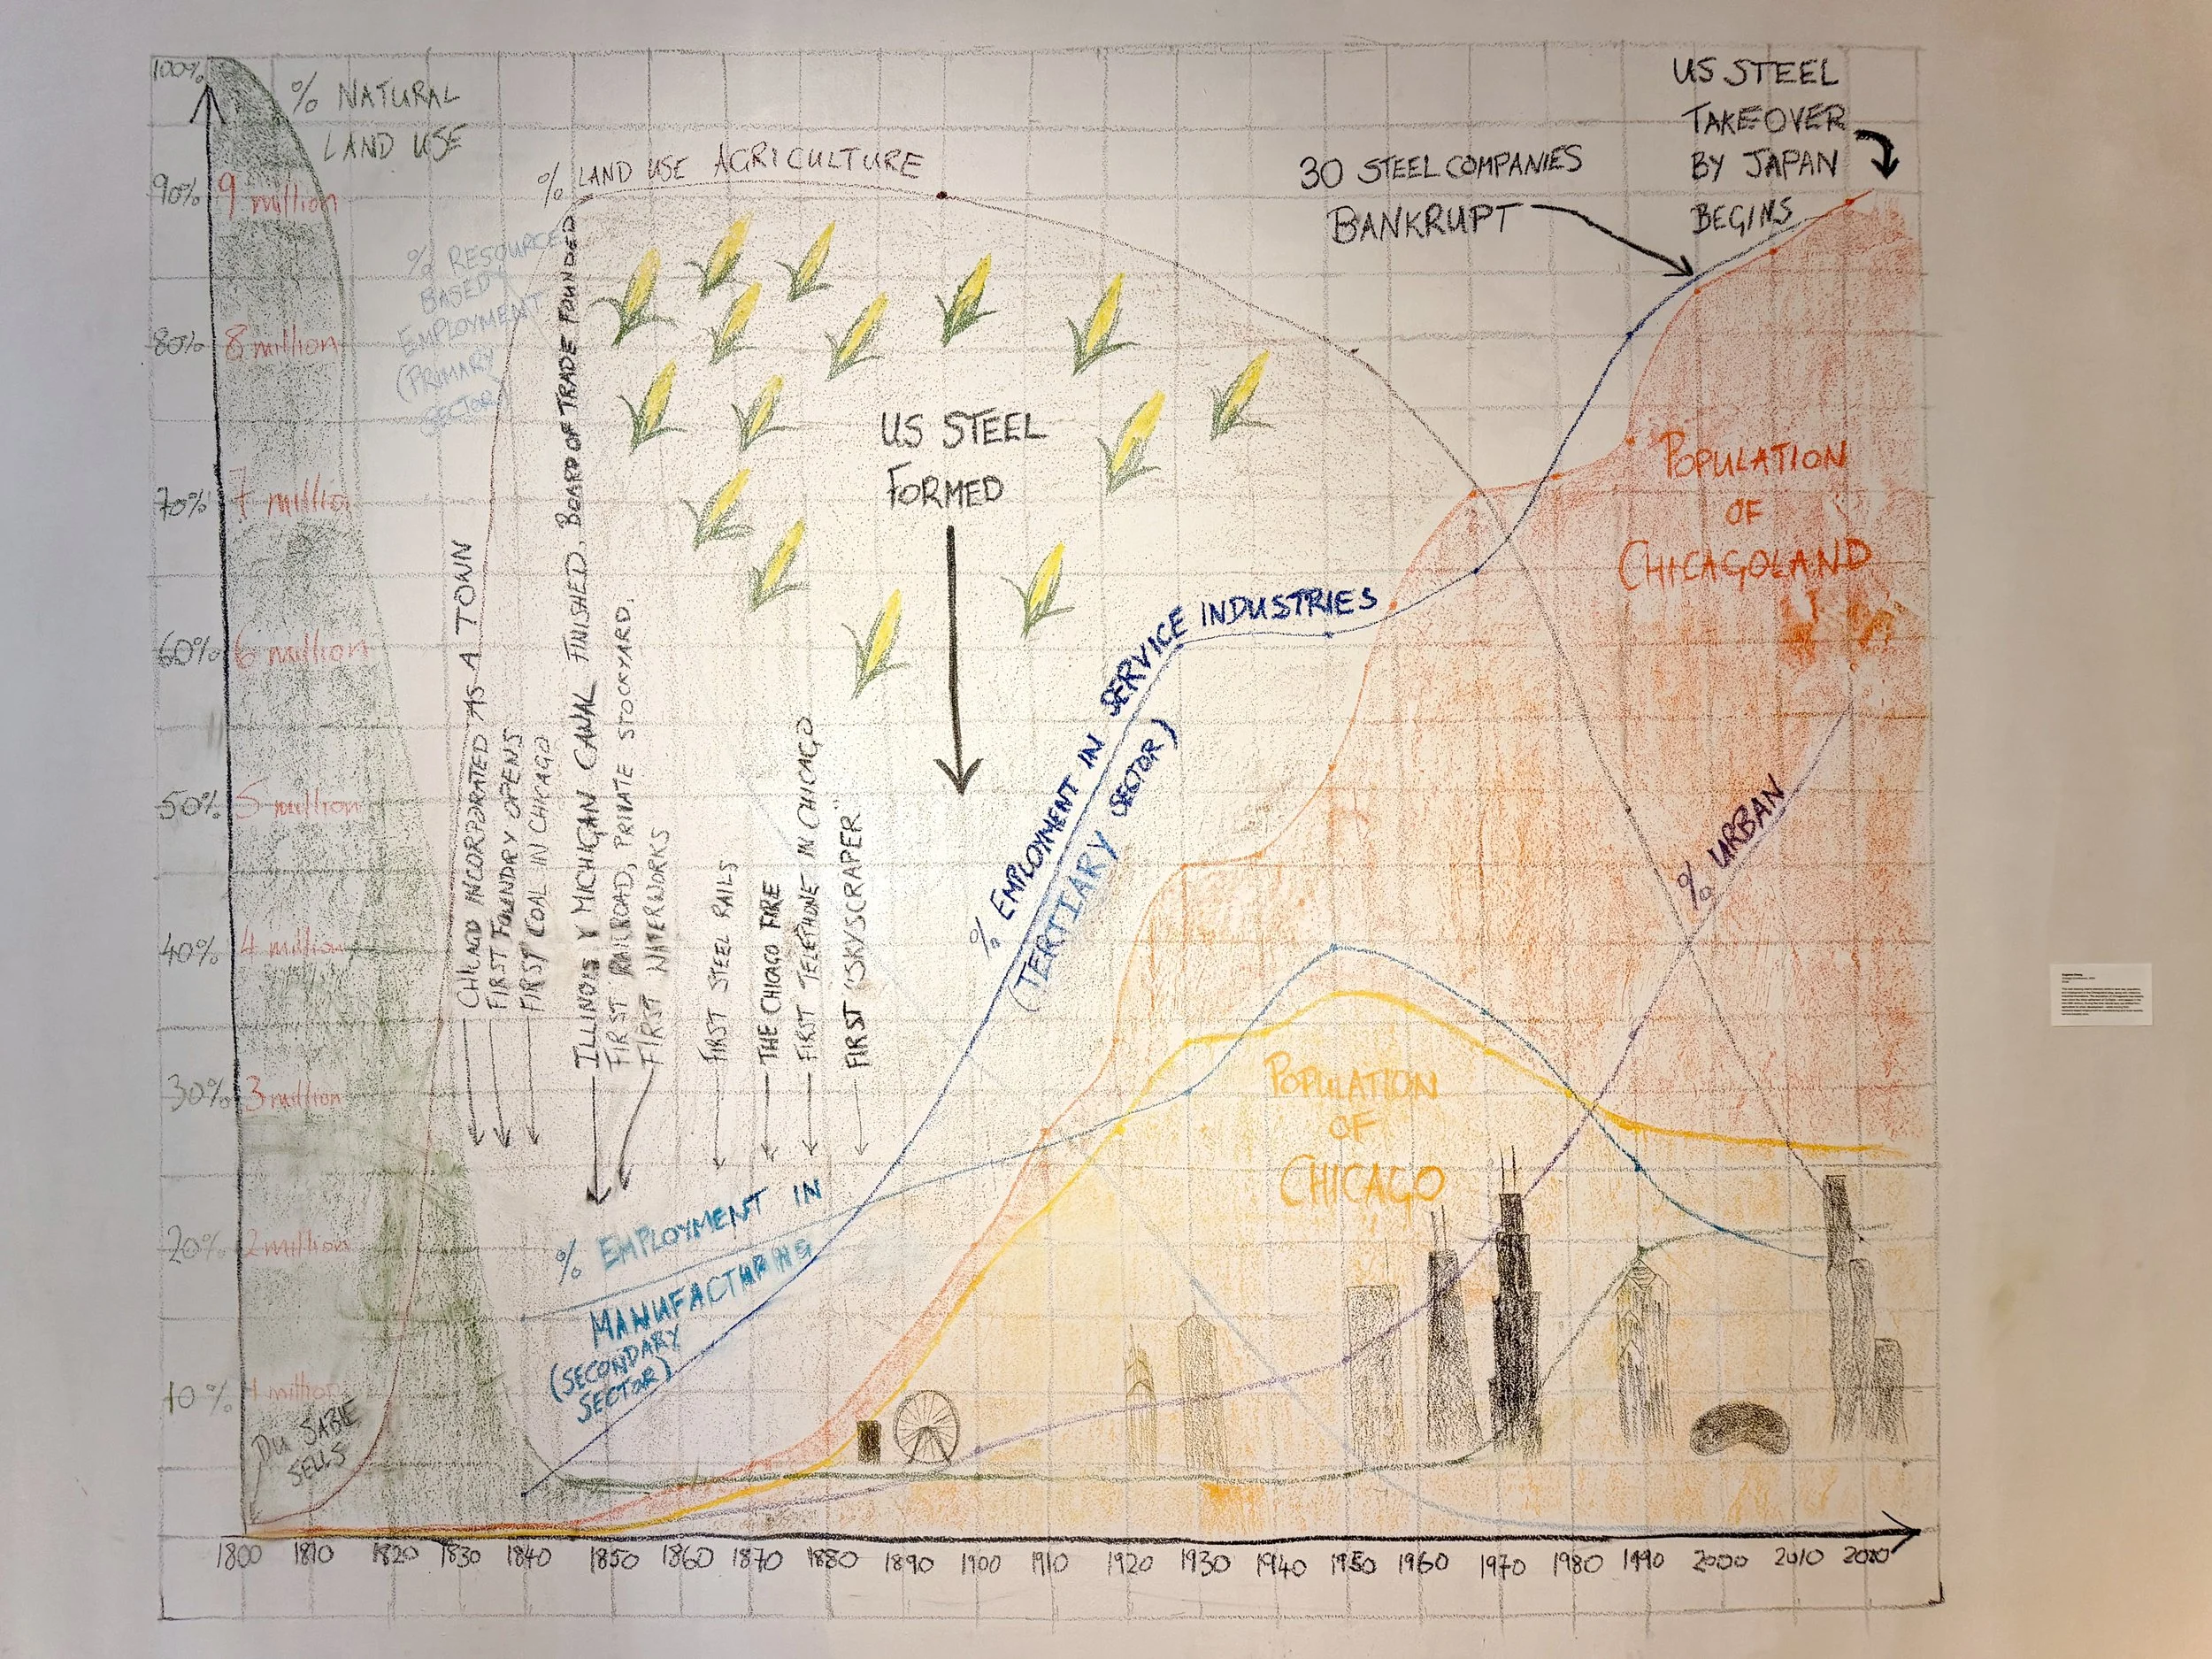 100%
90%
80%
70%
60%
50%
40%
30%
20%
10%
9 million
8 million
7 million
6 million
5 million
4 million
3 million
2 million
1 million
% NATURAL
LAND USE
% RESOURCE
BASED
EMPLOYMENT
(PRIMARY
SECTOR)
% LAND USE AGRICULTURE
DU SABLE
SELLS
CHICAGO INCORPORATED AS A TOWN
FIRST FOUNDRY OPENS
FIRST COAL IN CHICAGO
ILLINOIS Y MICHIGAN CANAL FINISHED. BOARD OF TRADE FOUNDED
FIRST RAILROAD, PRIVATE STOCKYARD.
FIRST WATERWORKS
FIRST STEEL RAILS
THE CHICAGO FIRE
FIRST TELEPHONE IN CHICAGO
FIRST "SKYSCRAPER"
US STEEL
FORMED
% EMPLOYMENT IN
MANUFACTURING
(SECONDARY
SECTOR)
% EMPLOYMENT IN SERVICE INDUSTRIES
(TERTIARY SECTOR)
30 STEEL COMPANIES
BANKRUPT
US STEEL
TAKEOVER
BY JAPAN
BEGINS
POPULATION
OF
CHICAGOLAND
% URBAN
POPULATION
OF
CHICAGO
1800 1810 1820 1830 1840 1850 1860 1870 1880 1890 1900 1910 1920 1930 1940 1950 1960 1970 1980 1990 2000 2010 2020